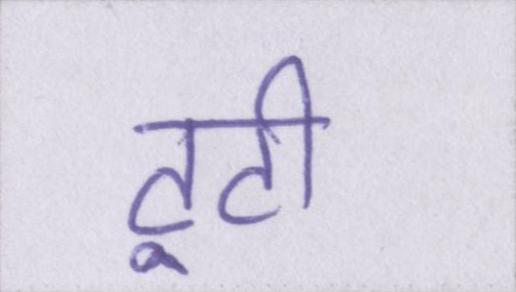 टूटी